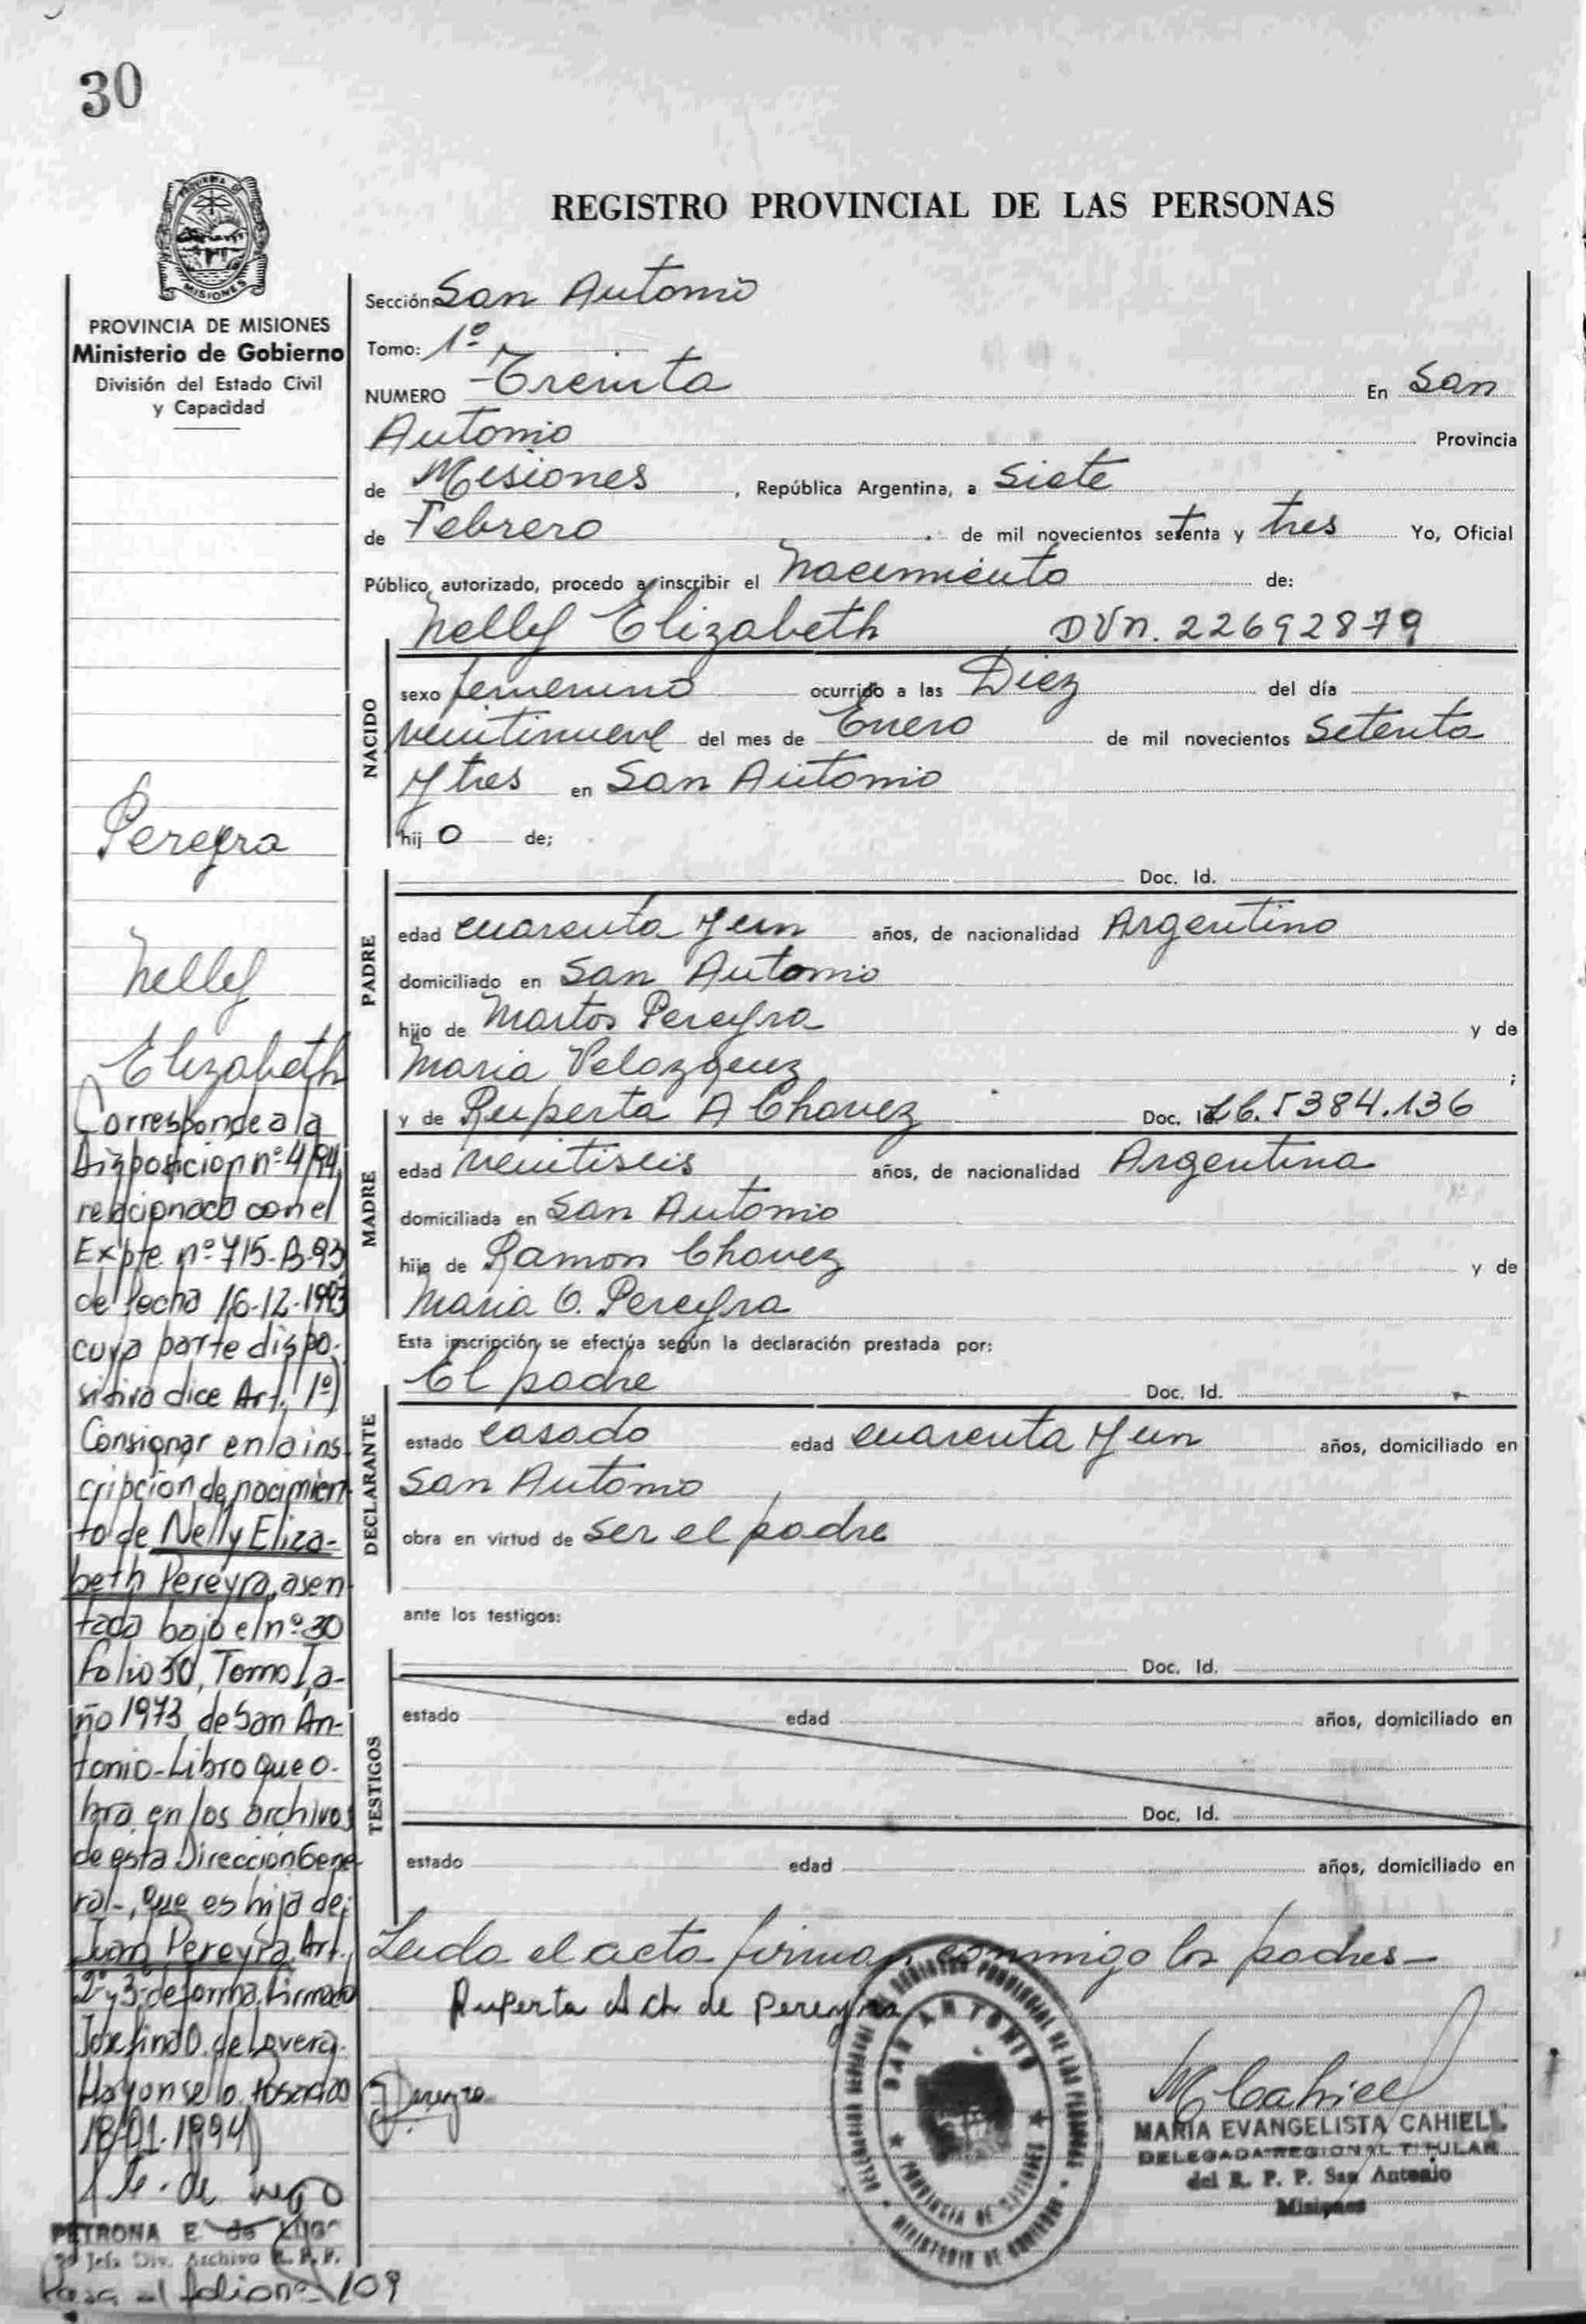 30
REGISTRO PROVINCIAL DE LAS PERSONAS
PROVINCIA DE MISIONES
Ministerio de Gobierno
División del Estado Civil
y Capacidad
Sección: San Antonio
Tomo: 1º
NUMERO Treinta En San
Antonio Provincia
de Misiones, República Argentina, a Siete
de Febrero de mil novecientos setenta y tres Yo, Oficial
Público autorizado, procedo a inscribir el Nacimiento de:
Nelly Elizabeth DUn. 22692879
NACIDO
sexo femenino ocurrido a las Diez del día
veintinueve del mes de Enero de mil novecientos Setenta
y tres en San Antonio
hij o de;
Doc. Id.
PADRE
edad cuarenta y un años, de nacionalidad Argentino
domiciliado en San Antonio
hijo de Martos Pereyra y de
Maria Velozquez ;
y de Ruperta A Chavez Doc. Id. LC. 5384.136
MADRE
edad veintiseis años, de nacionalidad Argentina
domiciliada en San Antonio
hija de Ramon Chavez y de
Maria O. Pereyra
Esta inscripción se efectúa según la declaración prestada por:
El padre Doc. Id.
DECLARANTE
estado casado edad cuarenta y un años, domiciliado en
San Antonio
obra en virtud de ser el padre
ante los testigos:
Doc. Id.
TESTIGOS
estado edad años, domiciliado en
Doc. Id.
estado edad años, domiciliado en
Leida el acta firman conmigo los padres-
Ruperta A Ch de Pereyra
Pereyra
MCahiell
MARIA EVANGELISTA CAHIELL
DELEGADA REGIONAL TITULAR
del R. P. P. San Antonio
Misiones
SAN ANTONIO
PROVINCIA DE MISIONES
REGISTRO PROVINCIAL DE LAS PERSONAS
MINISTERIO DE GOBIERNO
Pereyra
Nelly
Elizabeth
Corresponde a la
Disposicion nº 4/94,
relacionada con el
Expte. nº 715-B-93
de fecha 16-12-1993
cuya parte dispo-
sitiva dice Art. 1º)
Consignar en la ins-
cripcion de nacimien-
to de Nelly Eliza-
beth Pereyra, asen-
tada bajo el nº 30
folio 30, Tomo I, a-
ño 1973 de San An-
tonio-Libro que o-
bra en los archivos
de esta Direccion Gene-
ral-, que es hija de:
Juan Pereyra. Art.
2º y 3º de forma. Firmado
Josefina O. de Lovera.
Hay un sello. Posadas
18-01-1994
PETRONA E de LUGO
Jefa Div. Archivo R. P. P.
Pasa al folio nº 109